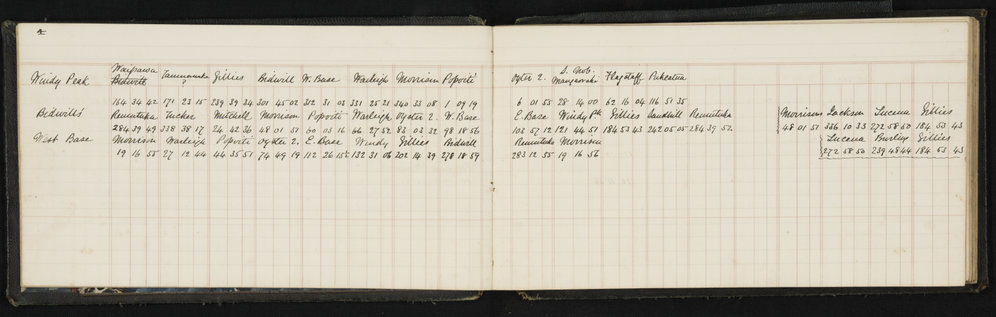 4
Windy Peak Waipawa Bidwill Gillies Bidwill W. Base Warleigh Morrison Popoti Oyster 2. Flagstaff Pukeatua
154 34 42 171 23 15 239 39 34 301 45 02 312 31 03 331 25 21 340 33 08 1 09 19 6 01 55 28 14 00 62 16 04 116 51 35
Bidwill's Remutaka Tucker Mitchell Morrison Popoti Warleigh Oyster 2. W. Base E. Base Windy Pk Gillies Sandhill Remutaka Morrisons Jackson Lucena Gillies
284 39 49 338 38 17 24 42 36 48 01 51 60 03 16 66 27 52 83 03 32 98 18 56 103 57 12 121 44 51 184 53 43 242 05 05 284 39 52 48 01 51 336 10 33 272 58 50 184 53 43
West Base Morrison Warleigh Popoti Oyster 2. E. Base Windy Gillies Bidwill Remutaka Morrison Lucena Gillies
19 16 55 27 12 44 44 35 51 74 49 19 112 26 132 31 06 202 14 39 278 18 59 283 12 55 19 16 56 272 58 50 239 48 44 184 53 43